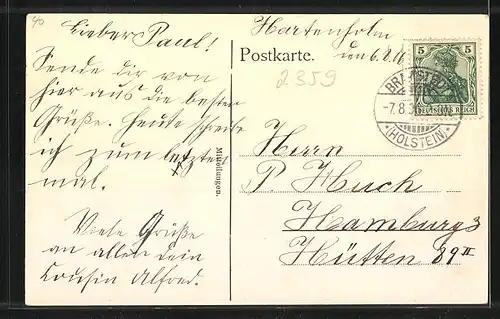 40
Lieber Paul!
Sende dir von
hier aus die besten
Grüße. Heute schreibe
ich zum letzten
mal.
Viele Grüße
an allen dein
Cousin Alfred.
Mitteilungen.
Hartenholm
Postkarte.
2359
5 5
DEUTSCHES REICH
BRAMSTEDT
-7.8.
(HOLSTEIN)
Herrn
P. Huch
Hamburg 3
Hütten 89 II